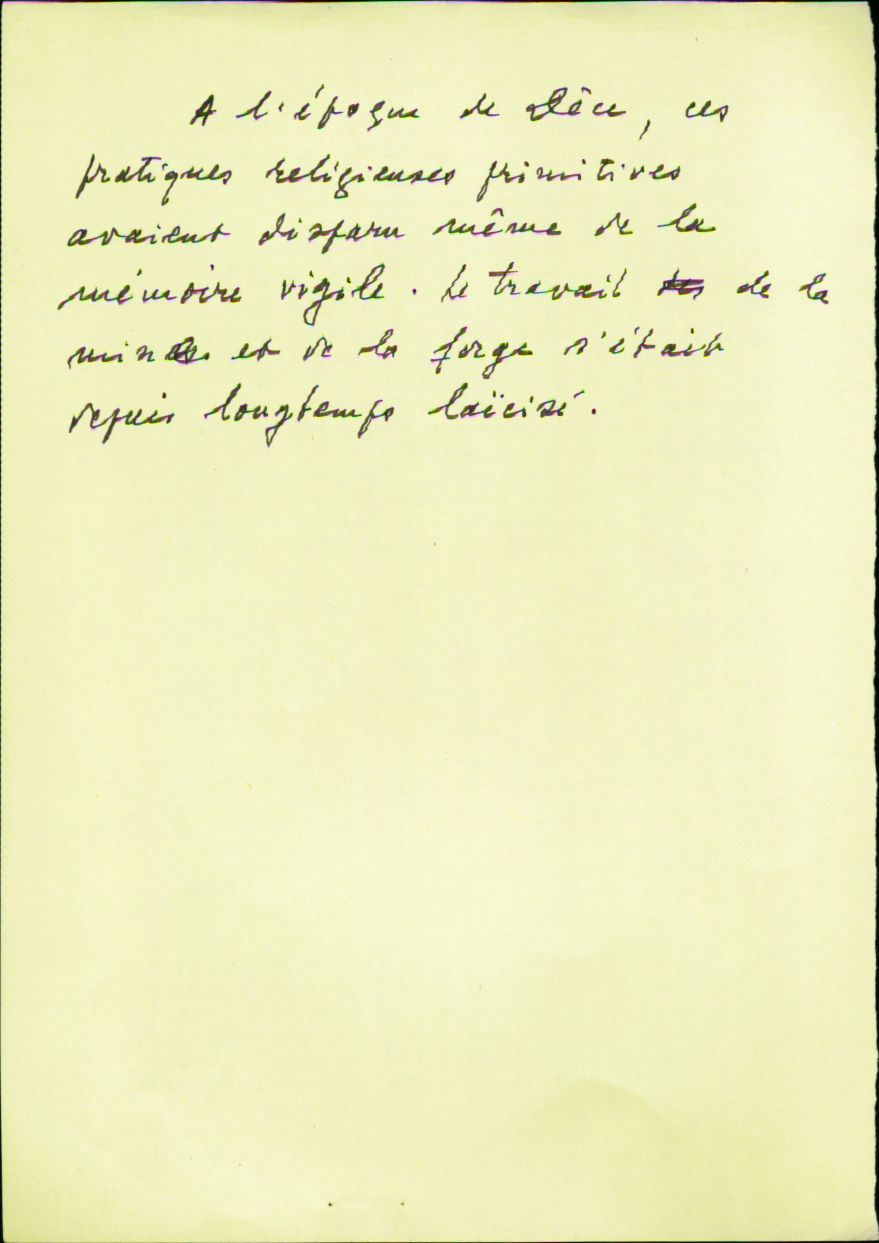 A l'époque de Dèce, ces
pratiques religieuses primitives
avaient disparu même de la
mémoire vigile. Le travail de la
mine et de la forge s'était
depuis longtemps laïcisé.